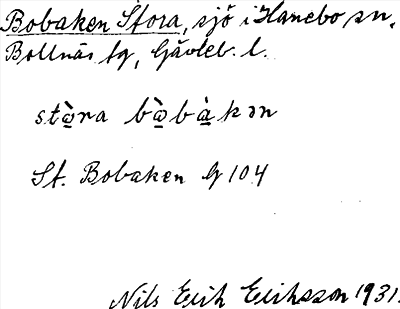 Bobaken Stora, sjö i Hanebo sn,
Bollnäs tg, Gävleb. l.
stɷ̀ra bɷ̀bàkən
St. Bobaken G 104
Nils Erik Eriksson 1931.